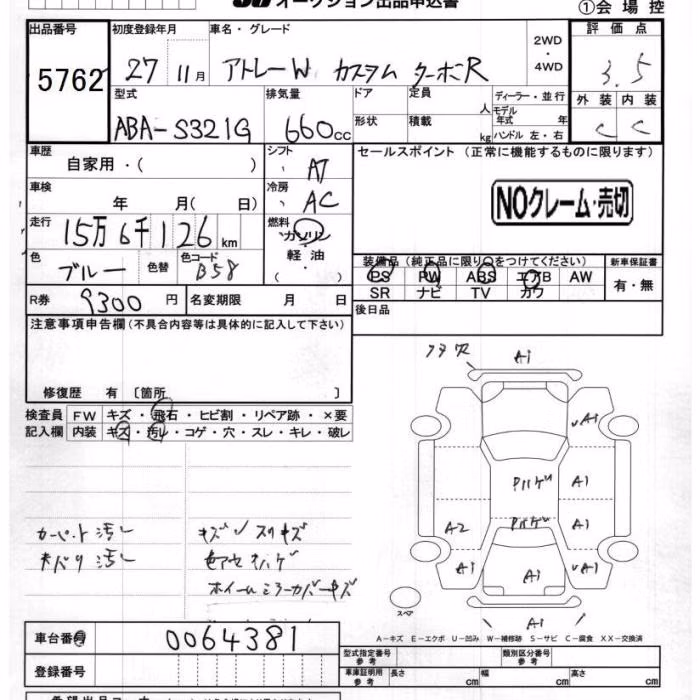 オークション出品申込書
①会場控
出品番号 初度登録年月 車名・グレード 評価点
5762 27 11月 アトレーW カスタム ターボR 2WD・4WD 3.5
型式 排気量 ドア 定員 人 ディーラー・並行 外装 内装
ABA-S321G 660cc 形状 積載 kg モデル年式 年 ハンドル 左・右 C C
車歴 自家用・( ) シフト AT セールスポイント (正常に機能するものに限ります)
車検 年 月( 日) 冷房 AC
NOクレーム・売切
走行 15万6千126km 燃料 ガソリン 軽油 ( )
色 ブルー 色替 色コード B58
装備品(純正品に限り○をつけてください) 新車保証書
PS PW ABS エアB AW 有・無
SR ナビ TV カワ
R券 9300円 名変期限 月 日
後日品
注意事項申告欄(不具合内容等は具体的に記入して下さい)
修復歴 有 〔箇所 〕
検査員 FW キズ・飛石・ヒビ割・リペア跡・×要
記入欄 内装 キズ・汚レ・コゲ・穴・スレ・キレ・破レ
フタ欠 A1
A1
Pハゲ A1
A2 Pハゲ A1
A1 A1 A1
A1
スペア
カーペット汚レ キズ スリキズ
天バリ汚レ
ホイールミラーカバーキズ
A-キズ E-エクボ U-凹み W-補修跡 S-サビ C-腐食 XX-交換済
車台番号 0064381 型式指定番号 参考 類別区分番号 参考
登録番号 車庫証明用 参考 長さ cm 幅 cm 高さ cm
希望出品コーナー